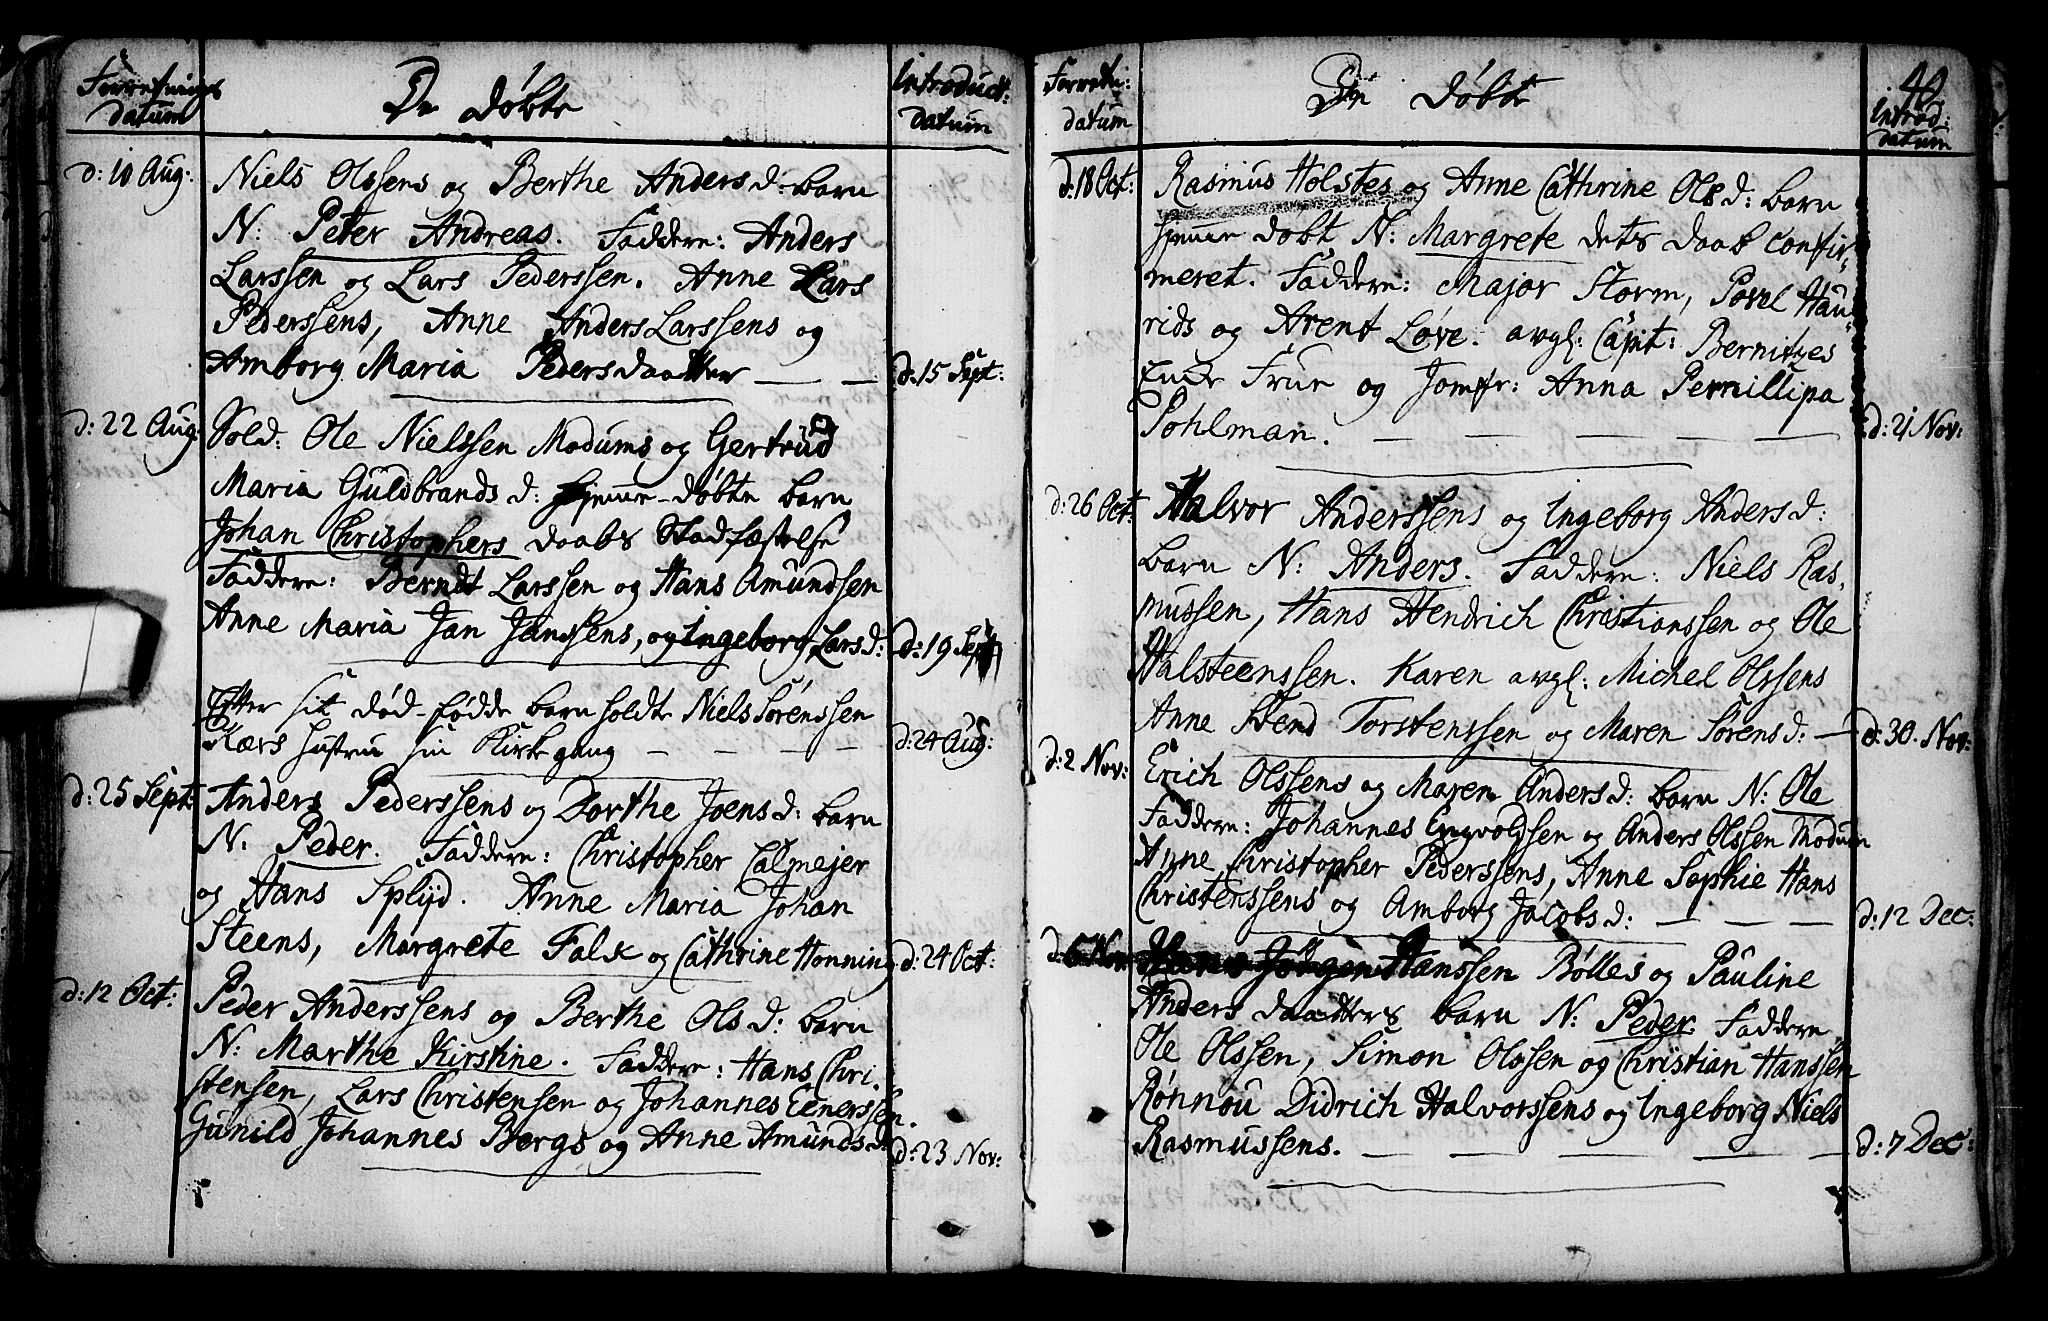 Forretnings datum
De Døbte
Introduct: datum
d: 10 Aug: Niels Olssens og Berthe Andersd: barn
N: Peter Andreas. Faddere: Anders
Larssen og Lars Pederssen. Anne Lars
Pederssens, Anne Anders Larssens og
Amborg Maria Pedersdaatter — — d: 15 Sept:
d: 22 Aug: Sold: Ole Nielssen Modums og Gertrud
Maria Guldbrandsd: hjemme-døbte barn
Johan Christophers daabs Stadfæstelse
Faddere: Berndt Larssen og Hans Amundsen
Anne Maria Jan Janssens, og Ingeborg Larsd: d: 19 Sept
Efter sit død-fødde barn holdte Niels Sørenssen
Kærs hustru sin Kirkegang — — — — d: 24 Aug:
d: 25 Sept: Anders Pederssens og Dorthe Joensd: barn
N: Peder. Faddere: Christopher Calmejer
og Hans Splijd. Anne Maria Johan
Steens, Margrete Falk og Cathrine Honning d: 24 Oct:
d: 12 Oct: Peder Anderssens og Berthe Olsd: barn
N: Marthe Kirstine. Faddere: Hans Chri-
stensen, Lars Christensen og Johannes Eenerssen.
Gunild Johannes Bergs og Anne Amundsd: d: 23 Nov:
Forretn: datum
De Døbte
40
Introd: datum
d: 18 Oct: Rasmus Holstes og Anne Cathrine Olsd: barn
hjemme døbt N: Margrete dets daab confir-
meret. Faddere: Major Storm, Povel Hau-
rids og Arent Løve. avgl: Capit: Bernitzes
Frue og Jomfr: Anna Pernillipa
Pohlman. — — — — — d: 21 Nov:
d: 26 Oct: Halvor Anderssens og Ingeborg Andersd:
barn N: Anders. Faddere: Niels Ras-
mussen, Hans Hendrich Christianssen og Ole
Halsteenssen. Karen avgl: Michel Olssens
Anne Stend Torstenssen og Maren Sørensd: — d: 30. Nov:
d: 2 Nov: Erich Olssens og Maren Andersd: barn N: Ole
Faddere: Johannes Engvoldsen og Anders Olssen Modum
Anne Christopher Pederssens, Anne Sophie Hans
Christenssens og Amborg Jacobsd: — — — d: 12 Dec:
d: 6 Nov: Hans Jørgen Hanssen Bølles og Pauline
Anders daatters barn N: Peder. Faddere
Ole Olssen, Simon Olssen og Christian Hanssen
Rønnou Didrich Halvorssens og Ingeborg Niels
Rasmussens. — — — — — d: 7 Dec: